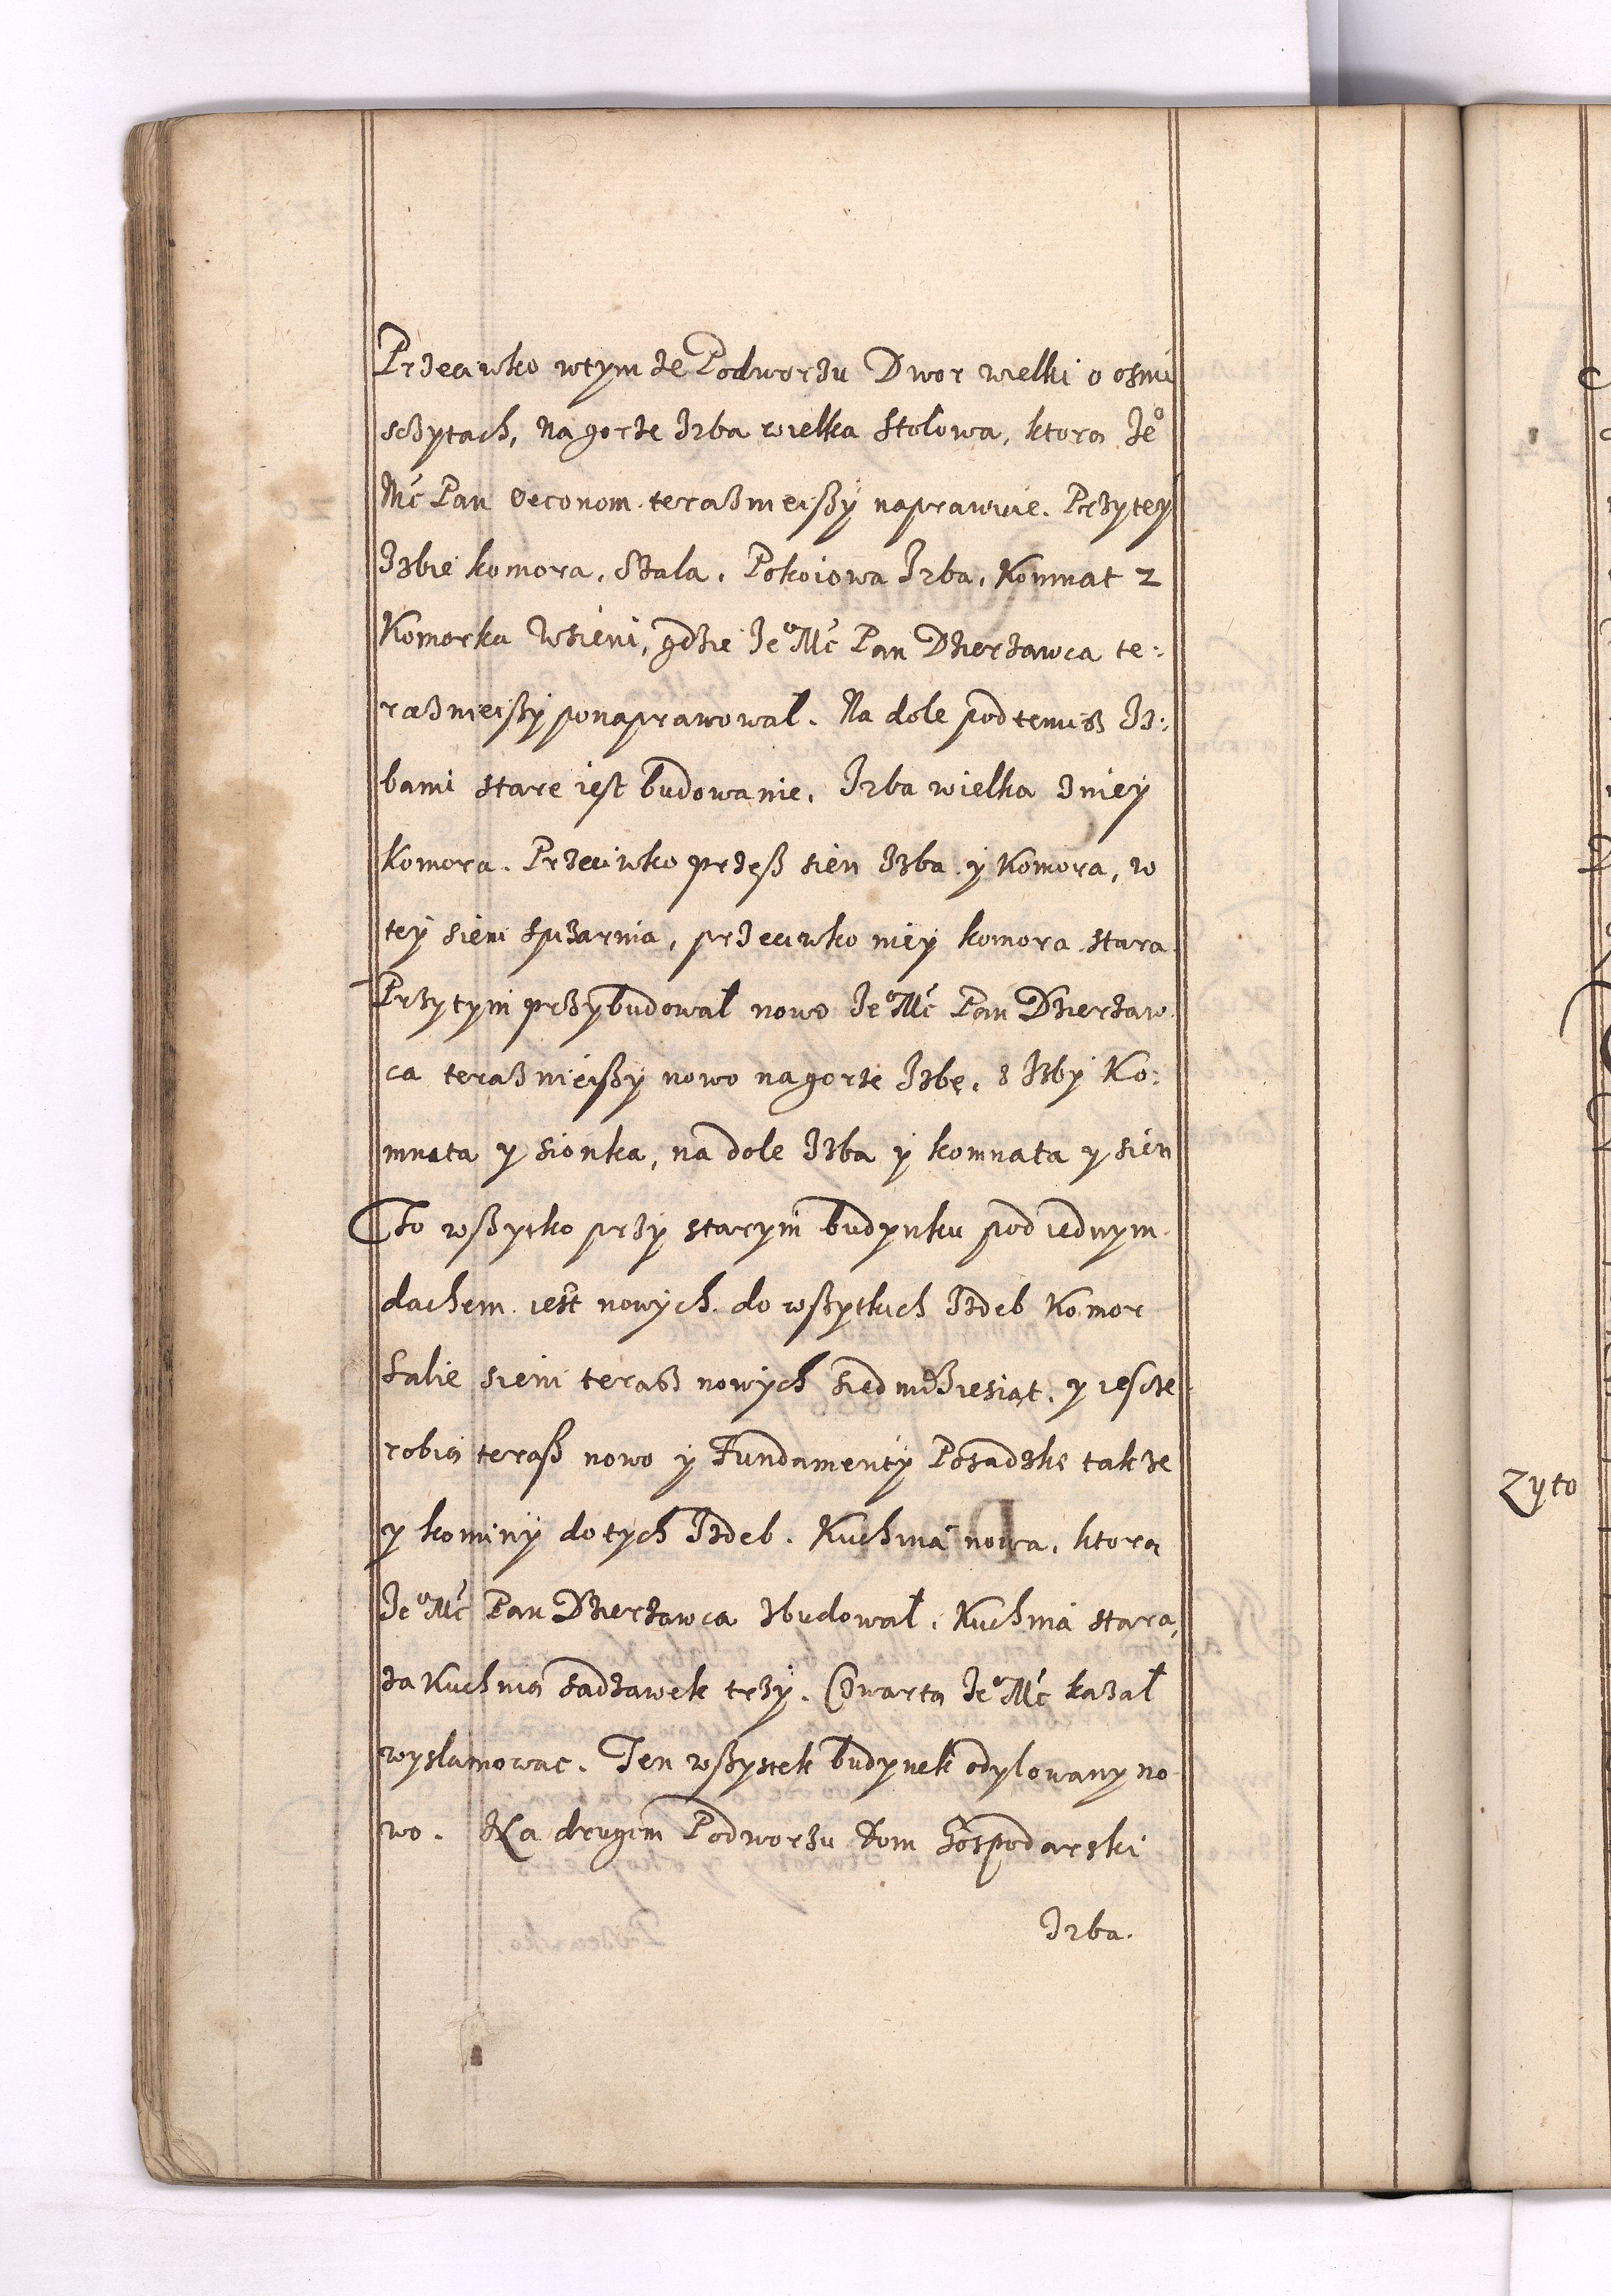 Przeciwko wtym ze Podworzu Dwor wielki o osmi
sczytach, na gorze Izba wielka stolowa, ktorą Jeº
Mć Pan Oeconom teraznieißÿ naprawuie. Przy tey
Izbie komora, Szala, Pokoiowa Izba, Komnat 2
Komorka wsieni, gdzie Jeº Mć Pan Dzierzawca te:
raznieißÿ ponaprawował. Na dole pod temisz Iz:
bami stare iest budowanie, Izba wielka z niey
komora. Przeciwko przeß sien Izba y Komora, w
teÿ sieni spizarnia, przeciwko nieÿ komora stara
Przytym przÿbudował nowo Jeº Mć Pan Dzierzaw
ca teraznieißÿ nowo nagorze Izbę, z Izbÿ Ko:
mnata y sionka, na dole Izba y komnata y sien
To wßyſtko przÿ starÿm budynku pod iednym
dachem iest nowÿch do wßytkich Izdeb Komor
Salie sieni terasz nowÿch siedmdziesiąt. y iescze
robią teraß nowo y Fundamentÿ Posadzkę takze
y kominÿ do tych Izdeb. Kuchnia nowa, ktorą
Jeº Mć Pan Dzierzawca zbudował, Kuchnia stara,
za Kuchnią sadzawek trzÿ. Czwartą Jeº Mć kazał
wyslamowac. Ten wßystek budynek odylowany no
wo. Na drugim Podworzu Dom Gospodarski
Izba.
Zyto